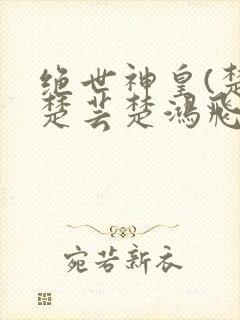 绝世神皇(楚
楚芸楚鸿飛
宛若新衣